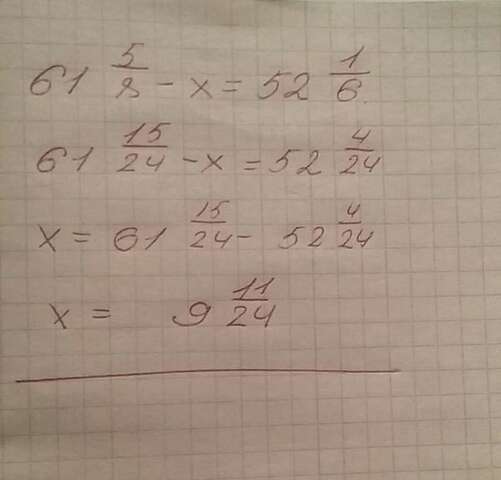 61 5/8 - x = 52 1/6
61 15/24 - x = 52 4/24
x = 61 15/24 - 52 4/24
x = 9 11/24